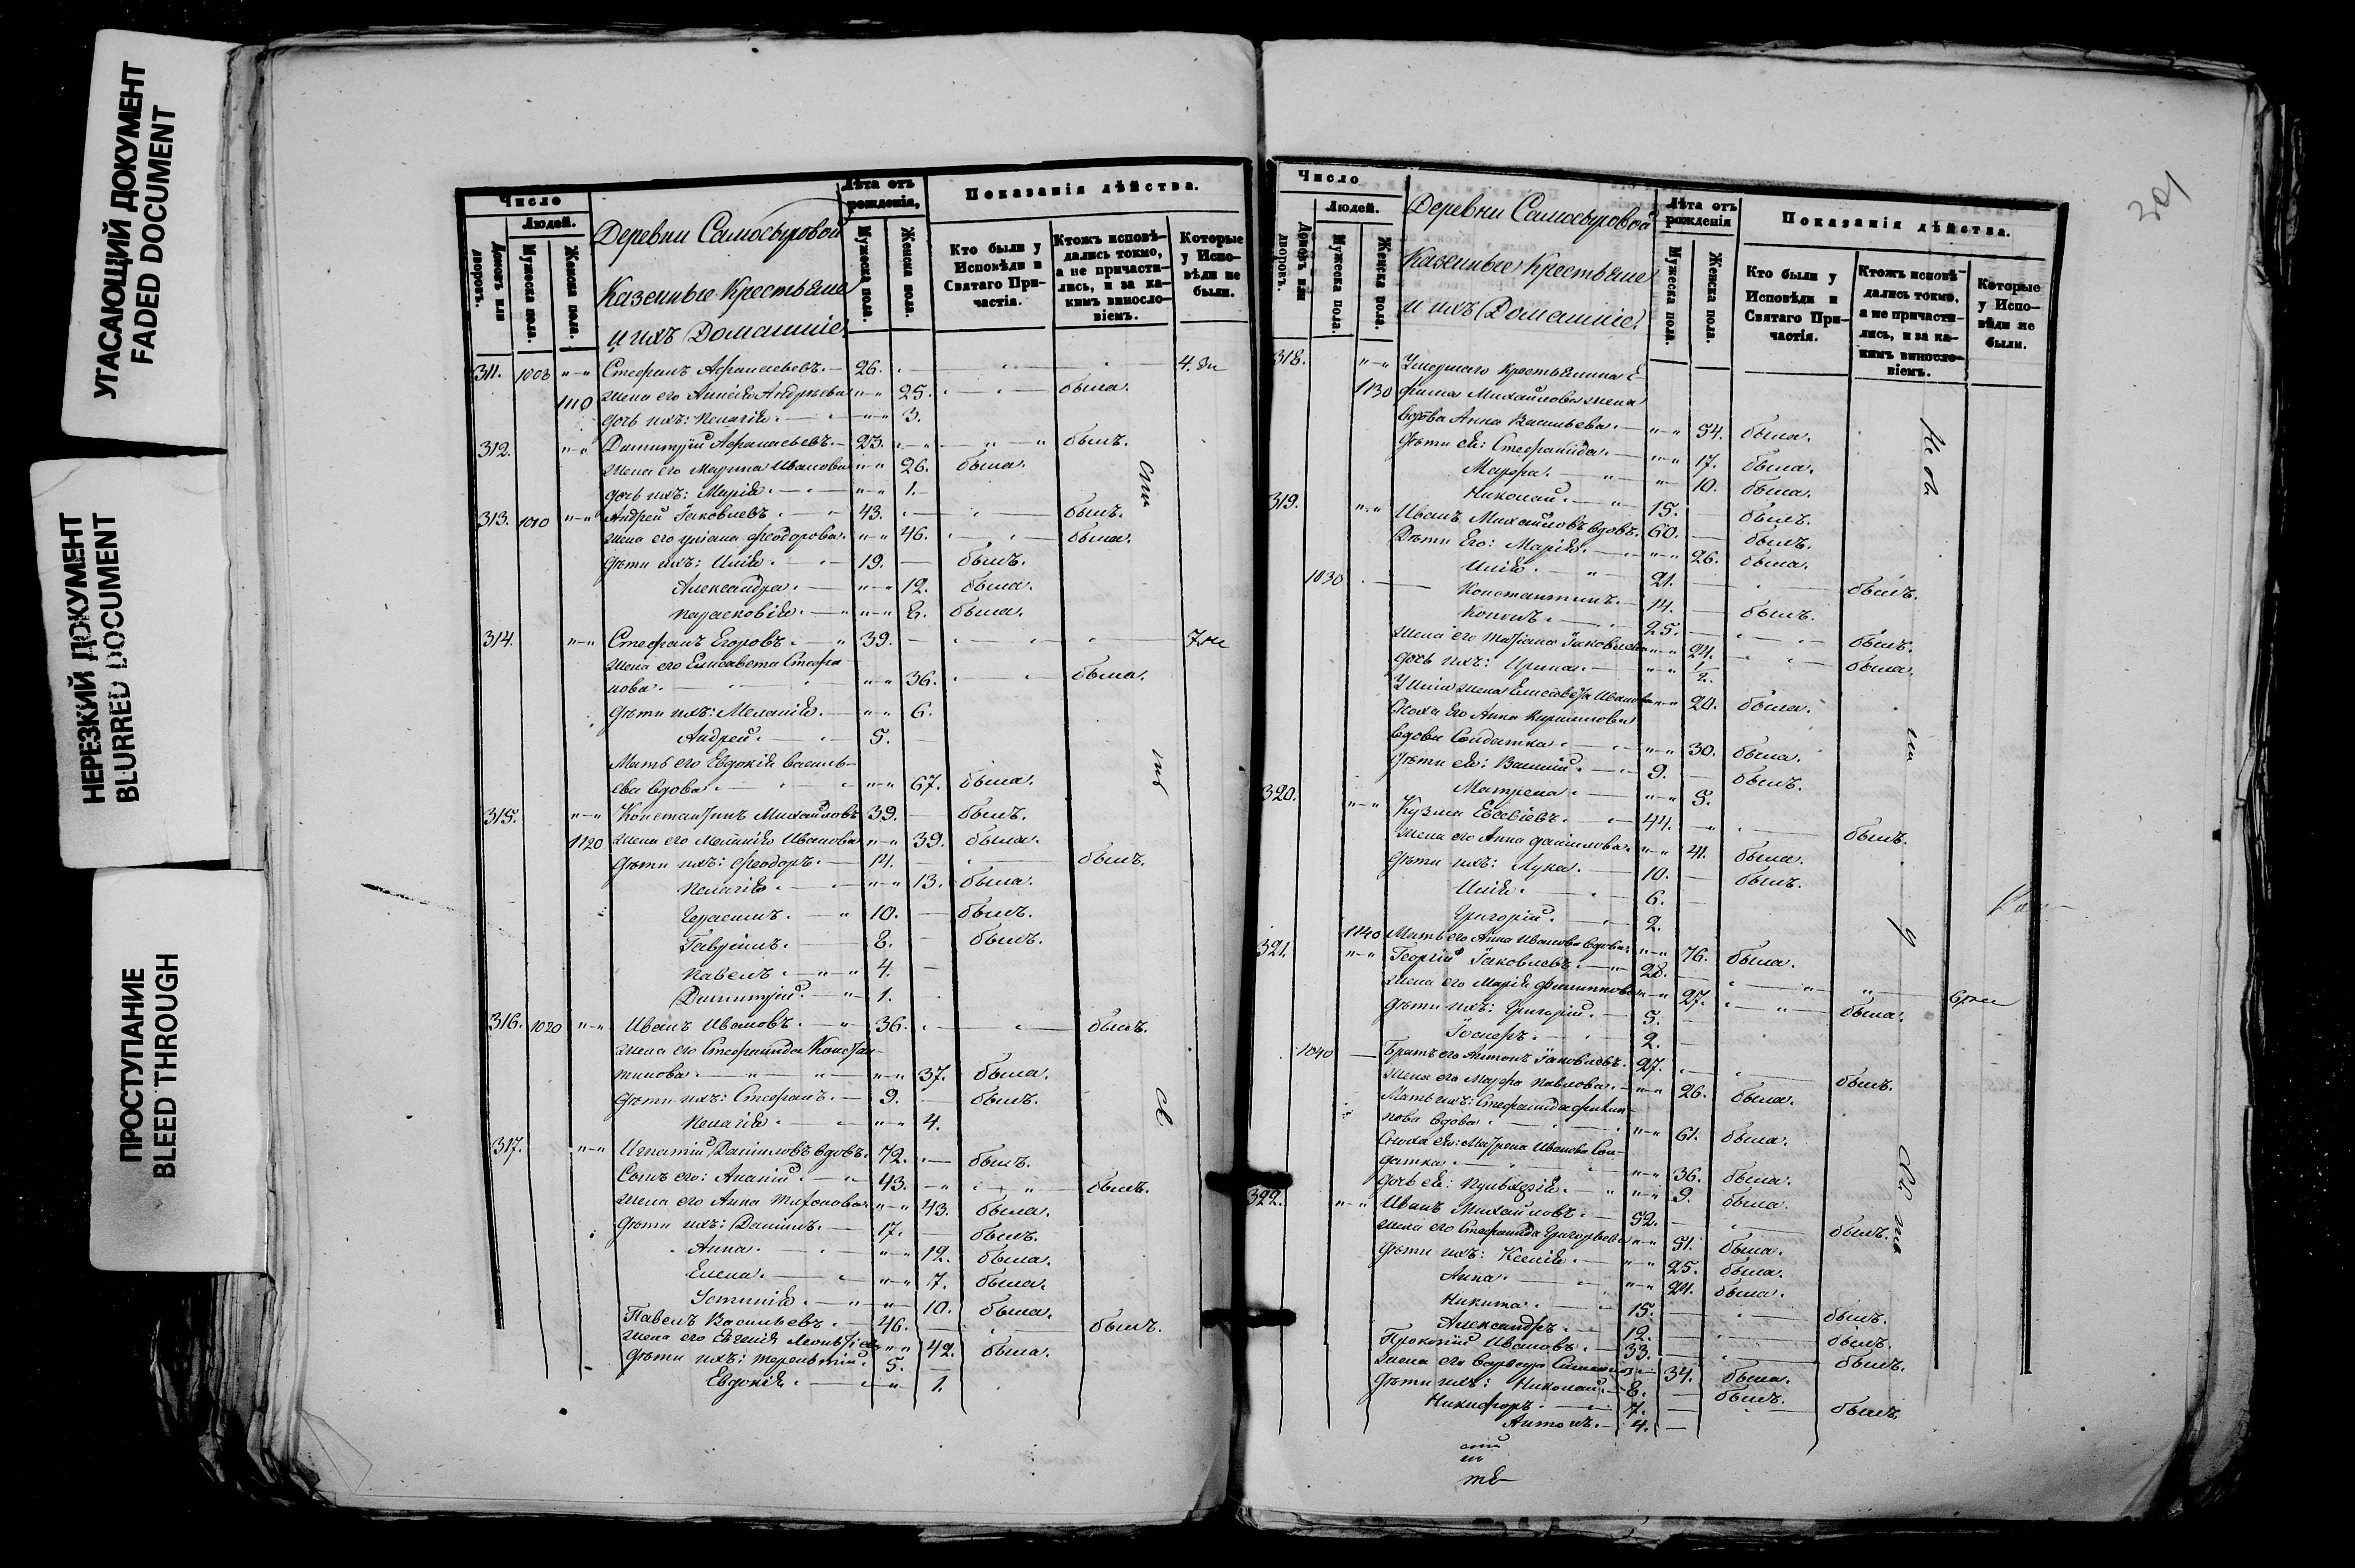 УГАСАЮЩИЙ ДОКУМЕНТ
FADED DOCUMENT
НЕРЕЗКИЙ ДОКУМЕНТ
BLURRED DOCUMENT
ПРОСТУПАНИЕ
BLEED THROUGH
Число
Людей.
Домовъ или дворовъ.
Мужеска пола.
Женска пола.
Деревни Самосыровой
Казенные Крестьяне
и ихъ Домашніе.
Лѣта отъ рожденія,
Мужеска пола.
Женска пола.
Показанія дѣйства.
Кто были у
Исповѣди и
Святаго При-
частія.
Ктожъ исповѣ-
дались токмо,
а не причасти-
лись, и за ка-
кимъ винословіемъ.
Которые
у Испо-
вѣди не
были.
311. 1008 "—" Стефанъ Афанасьевъ. 26. 4.
1110 жена его Анисія Андрѣева "—" 25. была.
дочь ихъ: Пелагія. "—" 3.
312. "—" Димитрій Афанасьевъ. 23. былъ.
жена его Марина Иванова "—" 26. была.
дочь ихъ: Марія. "—" 1.
313. 1010 "—" Андрей Іаковлевъ. 43. былъ.
жена его Уліана Феодорова. "—" 46. была.
дѣти ихъ: Илія. 19. былъ.
Александра. "—" 12. была.
Парасковія. "—" 8. была.
314. "—" Стефанъ Егоровъ. 39. 7
жена его Елисавета Стефа
нова. "—" 36. была.
дѣти ихъ: Меланія. "—" 6.
Андрей. 5.
Мать его Евдокія Василь-
ева вдова. "—" 67. была.
315. "—" Константинъ Михайловъ 39. былъ.
1120 жена его Меланія Иванова "—" 39. была.
дѣти ихъ: Феодоръ. 14. былъ.
Пелагія. "—" 13. была.
Герасимъ. 10. былъ.
Гавріилъ. 8. былъ.
Павелъ. 4.
Димитрій. 1.
316. 1020 "—" Иванъ Ивановъ. 36. былъ.
жена его Стефанида Констан-
тинова. "—" 37. была.
дѣти ихъ: Стефанъ. 9. былъ.
Пелагія. "—" 4.
317. "—" Игнатій Даніиловъ вдовъ. 72. былъ.
Сынъ его: Ананій. 43. былъ.
жена его Анна Тихонова. "—" 43. была.
дѣти ихъ: Даніилъ. 17. былъ.
Анна. "—" 12. была.
Елена. "—" 7. была.
10. была.
Павелъ Васильевъ. 46. былъ.
жена его Евгенія Леонтіева "—" 42. была.
дѣти ихъ: Терентій. 5.
Евдокія. 1.
301
Число
Людей.
Домовъ или дворовъ.
Мужеска пола.
Женска пола.
Деревни Самосыровой
Казенные Крестьяне
и ихъ Домашніе.
Лѣта отъ рожденія
Мужеска пола.
Женска пола.
Показанія дѣйства.
Кто были у
Исповѣди и
Святаго При-
частія.
Ктожъ исповѣ-
дались токмо,
а не причасти-
лись, и за ка-
кимъ винословіемъ.
Которые
у Испо-
вѣди не
были.
318. "—" Умершаго крестьянина Е-
1130 фима Михайлова жена
вдова Анна Васильева. "—" 54. была.
дѣти ея: Стефанида. "—" 17. была.
Марфа. 10. была.
Николай. 15. былъ.
319. "—" Иванъ Михайловъ вдовъ. 60. былъ.
Дѣти Его: Марія. "—" 26. была.
1030 Илія. 21. былъ.
Константинъ. 14. былъ.
Кононъ. 25. былъ.
жена его Татіана Іаковлева "—" 24. была.
дочь ихъ: Ирина. "—" 1/2.
У Иліи жена Елисавета Иванова "—" 20. была.
Сноха Его Анна Кириллова
вдова Солдатка. "—" 30. была.
дѣти ея: Василій. 9. былъ.
Матрена. "—" 5.
320. "—" Кузма Евсевіевъ. 44. былъ.
жена его Анна Даніилова. "—" 41. была.
дѣти ихъ: Лука. 10. былъ.
Илія. 6.
Григорій. 2.
1140 Мать его Анна Иванова вдова. "—" 76. была.
321. "—" Георгій Іаковлевъ. 28. 6
жена его Марія Филиппова "—" 27. была.
дѣти ихъ: Григорій. 5.
Іосифъ. 2.
1040 Братъ его Антонъ Іаковлевъ. 27. былъ.
жена его Марфа Павлова. "—" 26. была.
Мать ихъ: Стефанида Филип-
пова вдова. "—" 61. была.
Сноха ея: Матрена Иванова Сол-
датка. "—" 36. была.
дочь ея: Пульхерія. "—" 9. была.
322. "—" Иванъ Михайловъ. 52. былъ.
жена его Стефанида Григорьева "—" 51. была.
дѣти ихъ: Ксенія. "—" 25. была.
Анна. "—" 24. была.
Никита. 15. былъ.
Александръ. 12. былъ.
Прокопій Ивановъ. 33. былъ.
жена его Варвара 34. была.
дѣти ихъ: Николай. 8. былъ.
Никифоръ. 7. былъ.
Антонъ. 4.